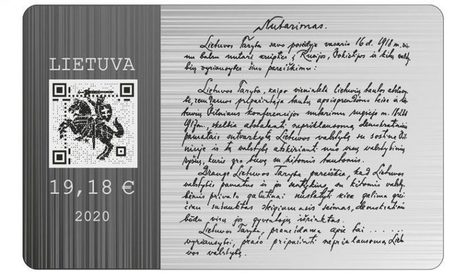 LIETUVA
19,18 €
2020
Nutarimas.
Lietuvos Taryba savo posėdyje vasario 16 d. 1918 m. vie
nu balsu nutarė kreiptis į Rusijos, Vokietijos ir kitų valsty
bių vyriausybes šiuo pareiškimu:
Lietuvos Taryba, kaipo vienintelė lietuvių tautos atstovy
bė,
pripažintąja tautų apsisprendimo teise ir lie
tuvių Vilniaus konferencijos nutarimu rugsėjo m. 18-23 d.
1917 m., skelbia atstatanti nepriklausomą, demokratiniais
pamatais sutvarkytą Lietuvos valstybę su sostine Vil
niuje ir tą valstybę atskirianti nuo visų valstybinių
ryšių, kurie yra buvę su kitomis tautomis.
Drauge Lietuvos Taryba pareiškia, kad Lietuvos
valstybės pamatus ir jos santykius su kitomis valsty
bėmis privalo galutinai nustatyti kiek galima grei
čiau sušauktas steigiamasis seimas, demokratiniu
būdu visų jos gyventojų išrinktas.
Lietuvos Taryba, pranešdama apie tai
vyriausybei, prašo pripažinti nepriklausomą Lietu
vos valstybę.